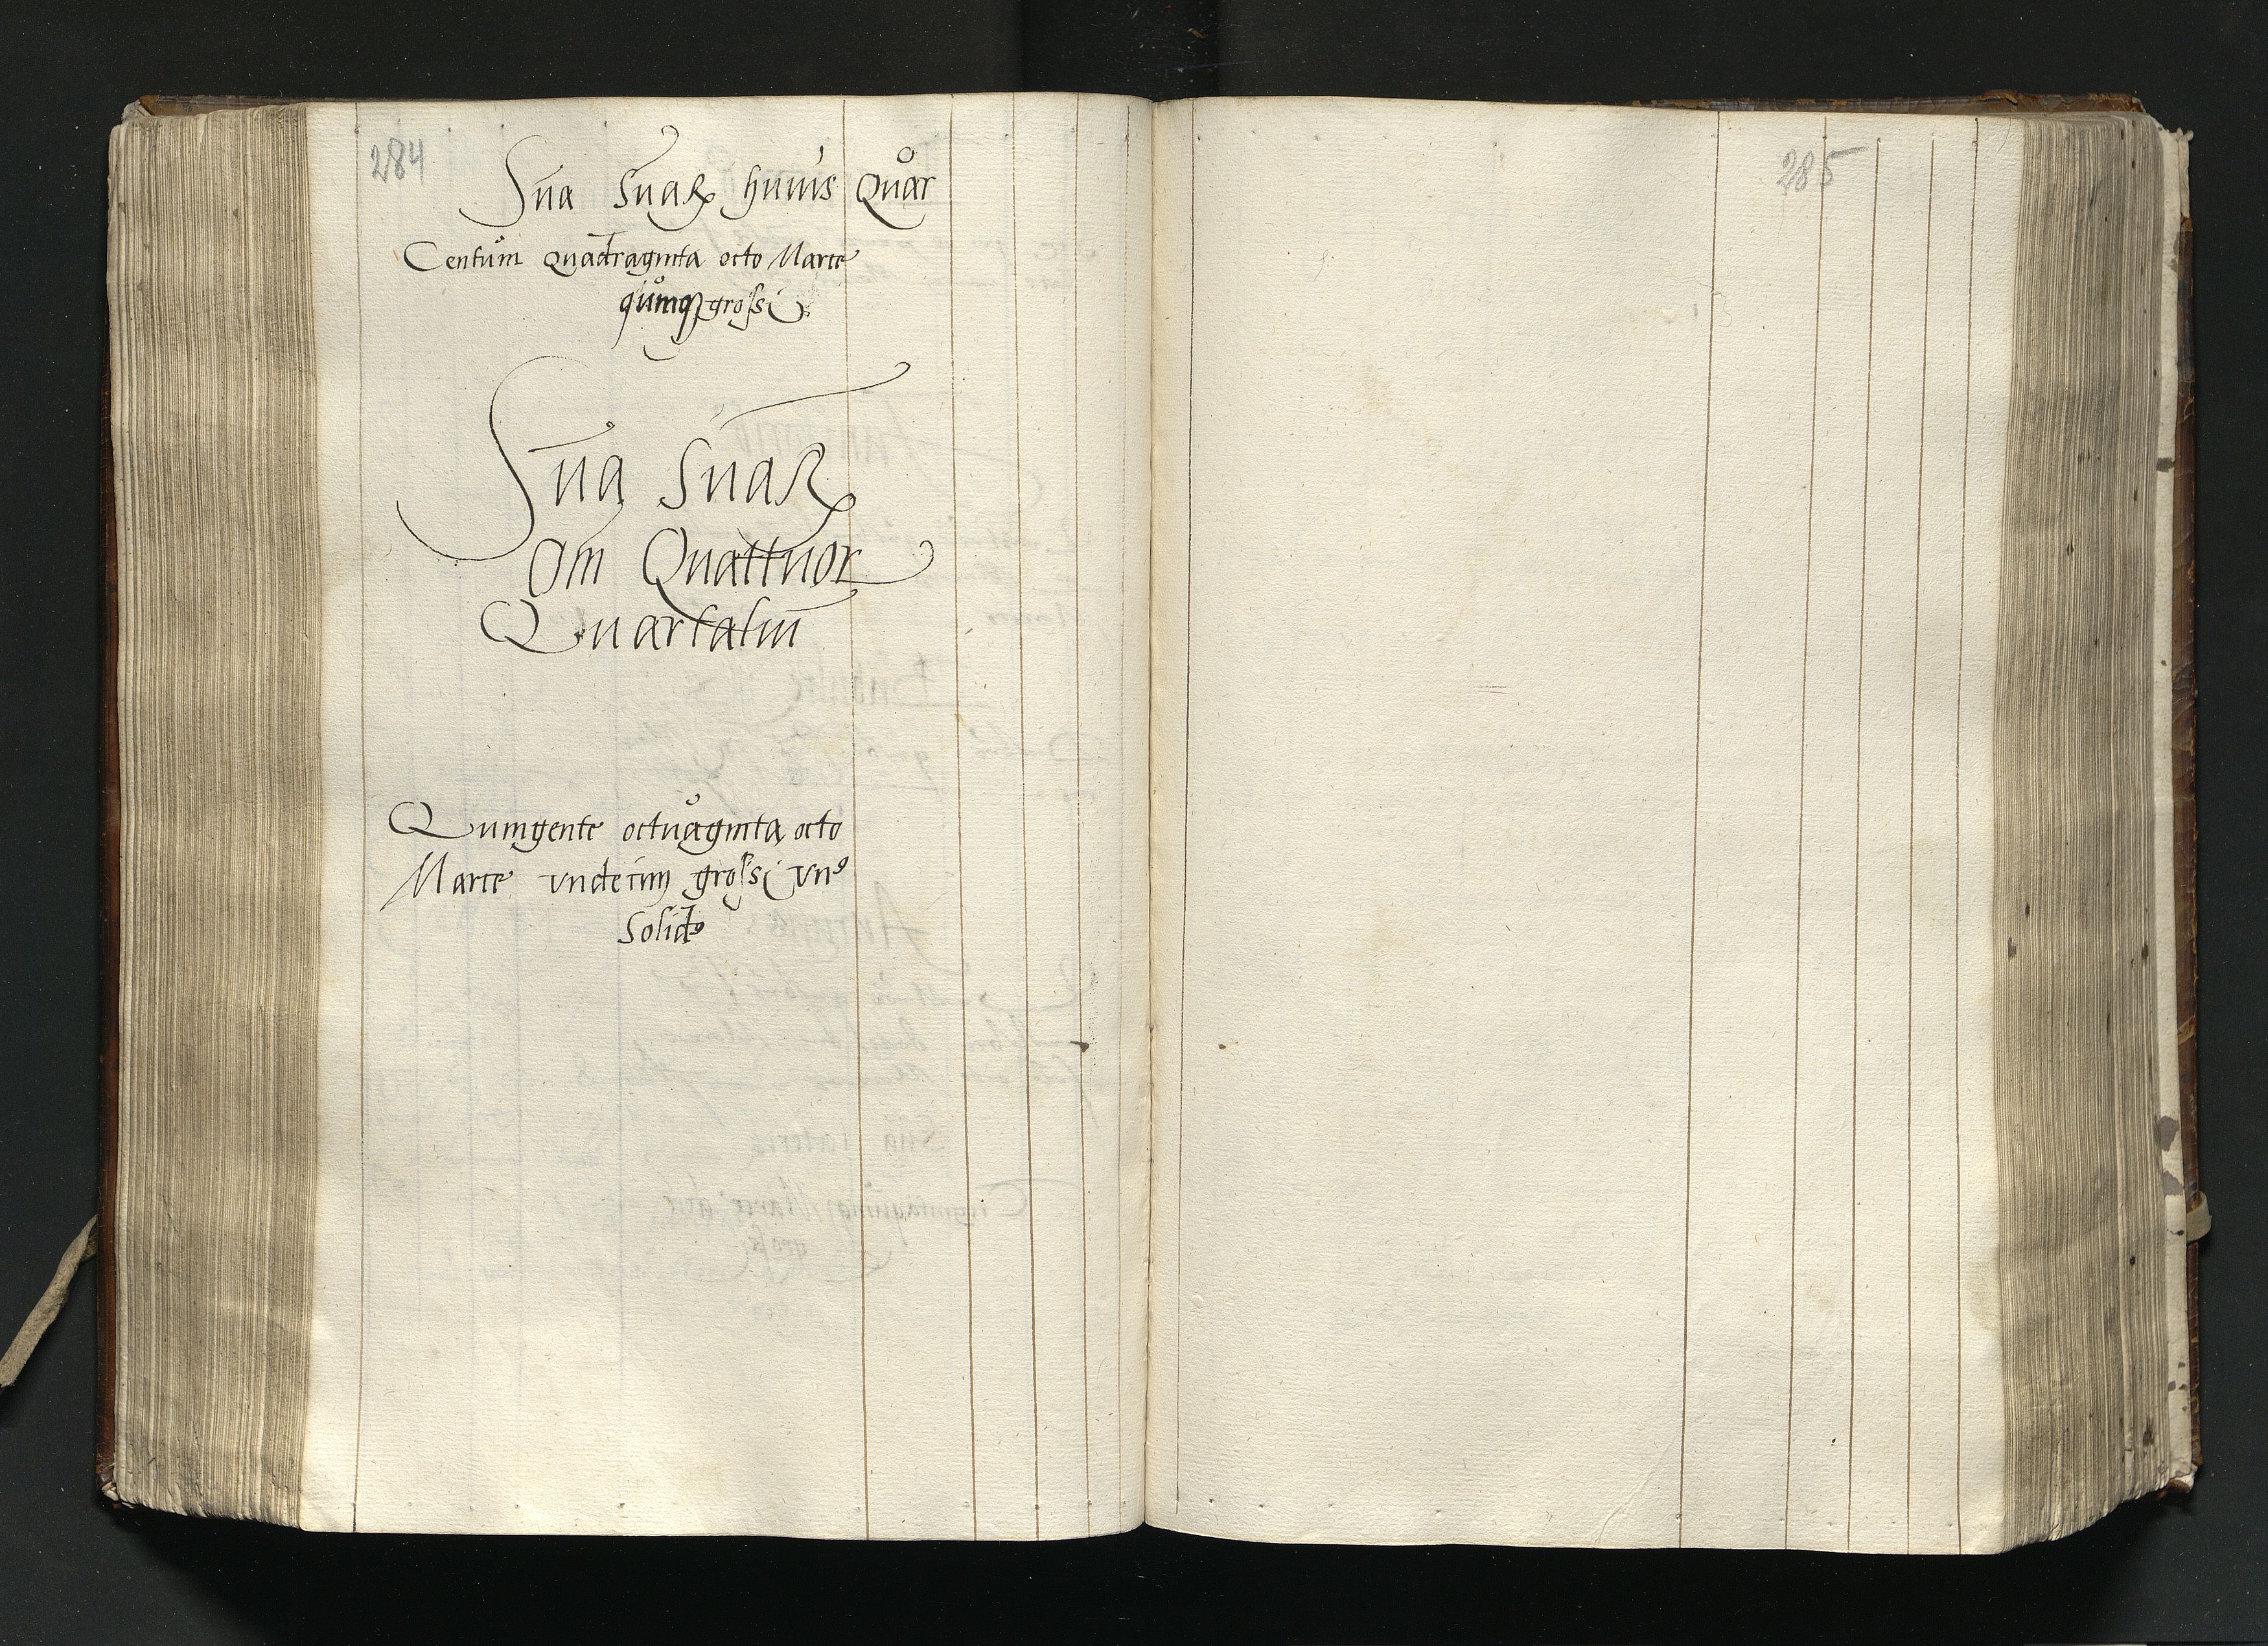 284
Sūa Suaꝝ huius Quar
Centum Quadraginta octo Marce
quinqȝ grossi
Sūa Suaꝝ
Om Quattuor
Quartaliū
Quingente octuaginta octo
Marce vndecim grossi vnꝰ
Solidꝰ
285